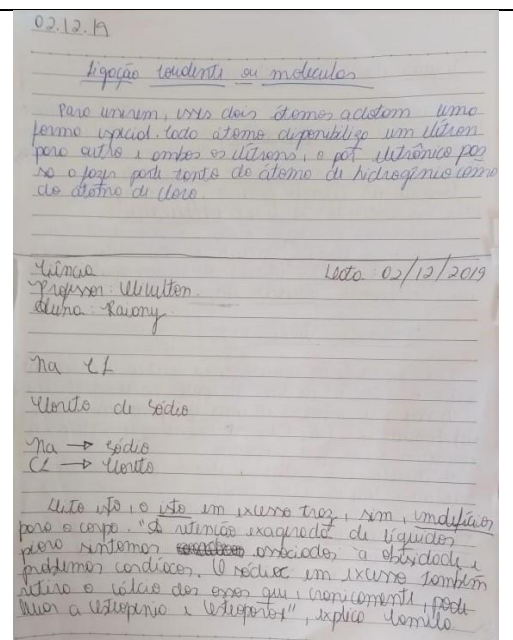 02.12.19
Ligação covalente ou moleculas
Para unirem, esses dois átomos adotam uma
forma especial. todo átomo disponibiliza um elétron
para outro e ambos os elétrons, o par eletrônico pas
sa a fazer parte tanto do átomo de hidrogênio como
do átomo de cloro.
Ciência
Data: 02/12/2019
Professor:
Aluna: Raiony
Na Cl
Cloreto de Sódio
Na → Sódio
Cl → Cloreto
isto, o isto em excesso traz, sim, maleficios
para o corpo. "A retenção exagerada de liquidos
piora sintomas associados a obesidade e
problemas cardíacos. O sódio em excesso também
retira o cálcio dos ossos que, cronicamente, pode
levar a osteopenia e osteoporose", explica Camilla.